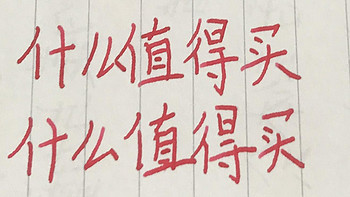 什么值得买
什么值得买